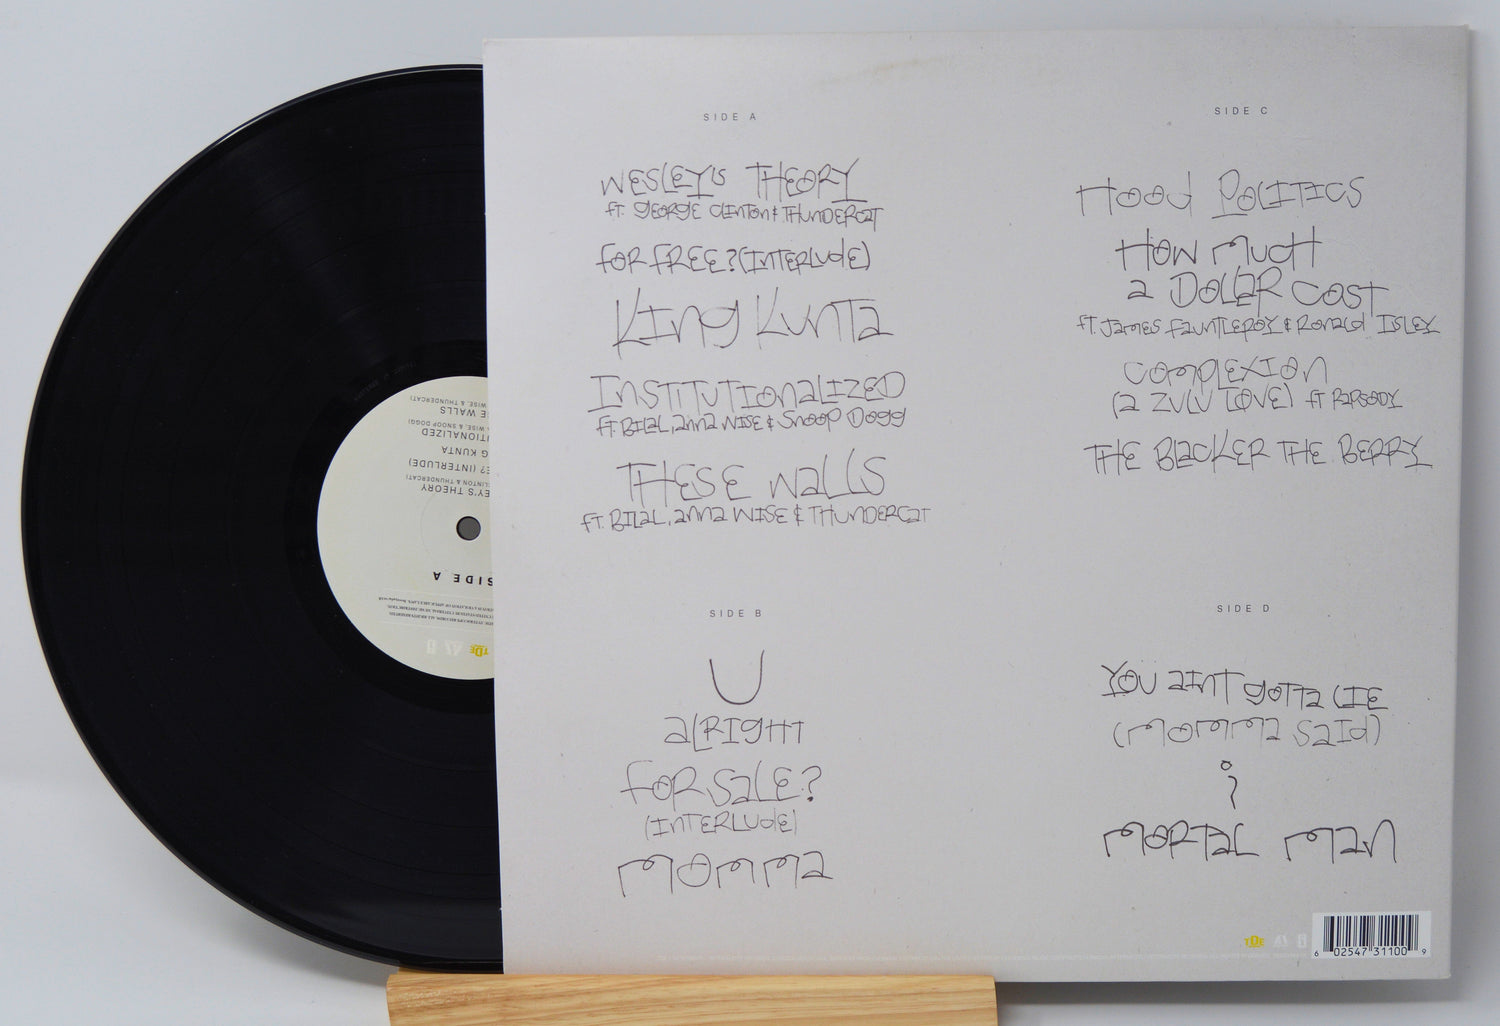 SIDE A
WESLEY'S THEORY
ft. GEORGE CLINTON & THUNDERCAT
FOR FREE? (INTERLUDE)
KING KUNTA
INSTITUTIONALIZED
ft. BILAL, ANNA WISE & SNOOP DOGG
THESE WALLS
ft. BILAL, ANNA WISE & THUNDERCAT
SIDE B
U
ALRIGHT
FOR SALE?
(INTERLUDE)
MOMMA
SIDE C
HOOD POLITICS
HOW MUCH
A DOLLAR COST
ft. JAMES FAUNTLEROY & RONALD ISLEY
COMPLEXION
(A ZULU LOVE) ft RAPSODY
THE BLACKER THE BERRY
SIDE D
YOU AINT GOTTA LIE
(MOMMA SAID)
i
MORTAL MAN
TDE
6 02547 31100 9
WISE, & THUNDERCAT)
E WALLS
WISE & SNOOP DOGG)
TIONALIZED
G KUNTA
E? (INTERLUDE)
LINTON & THUNDERCAT)
EY'S THEORY
SIDE A
TDE